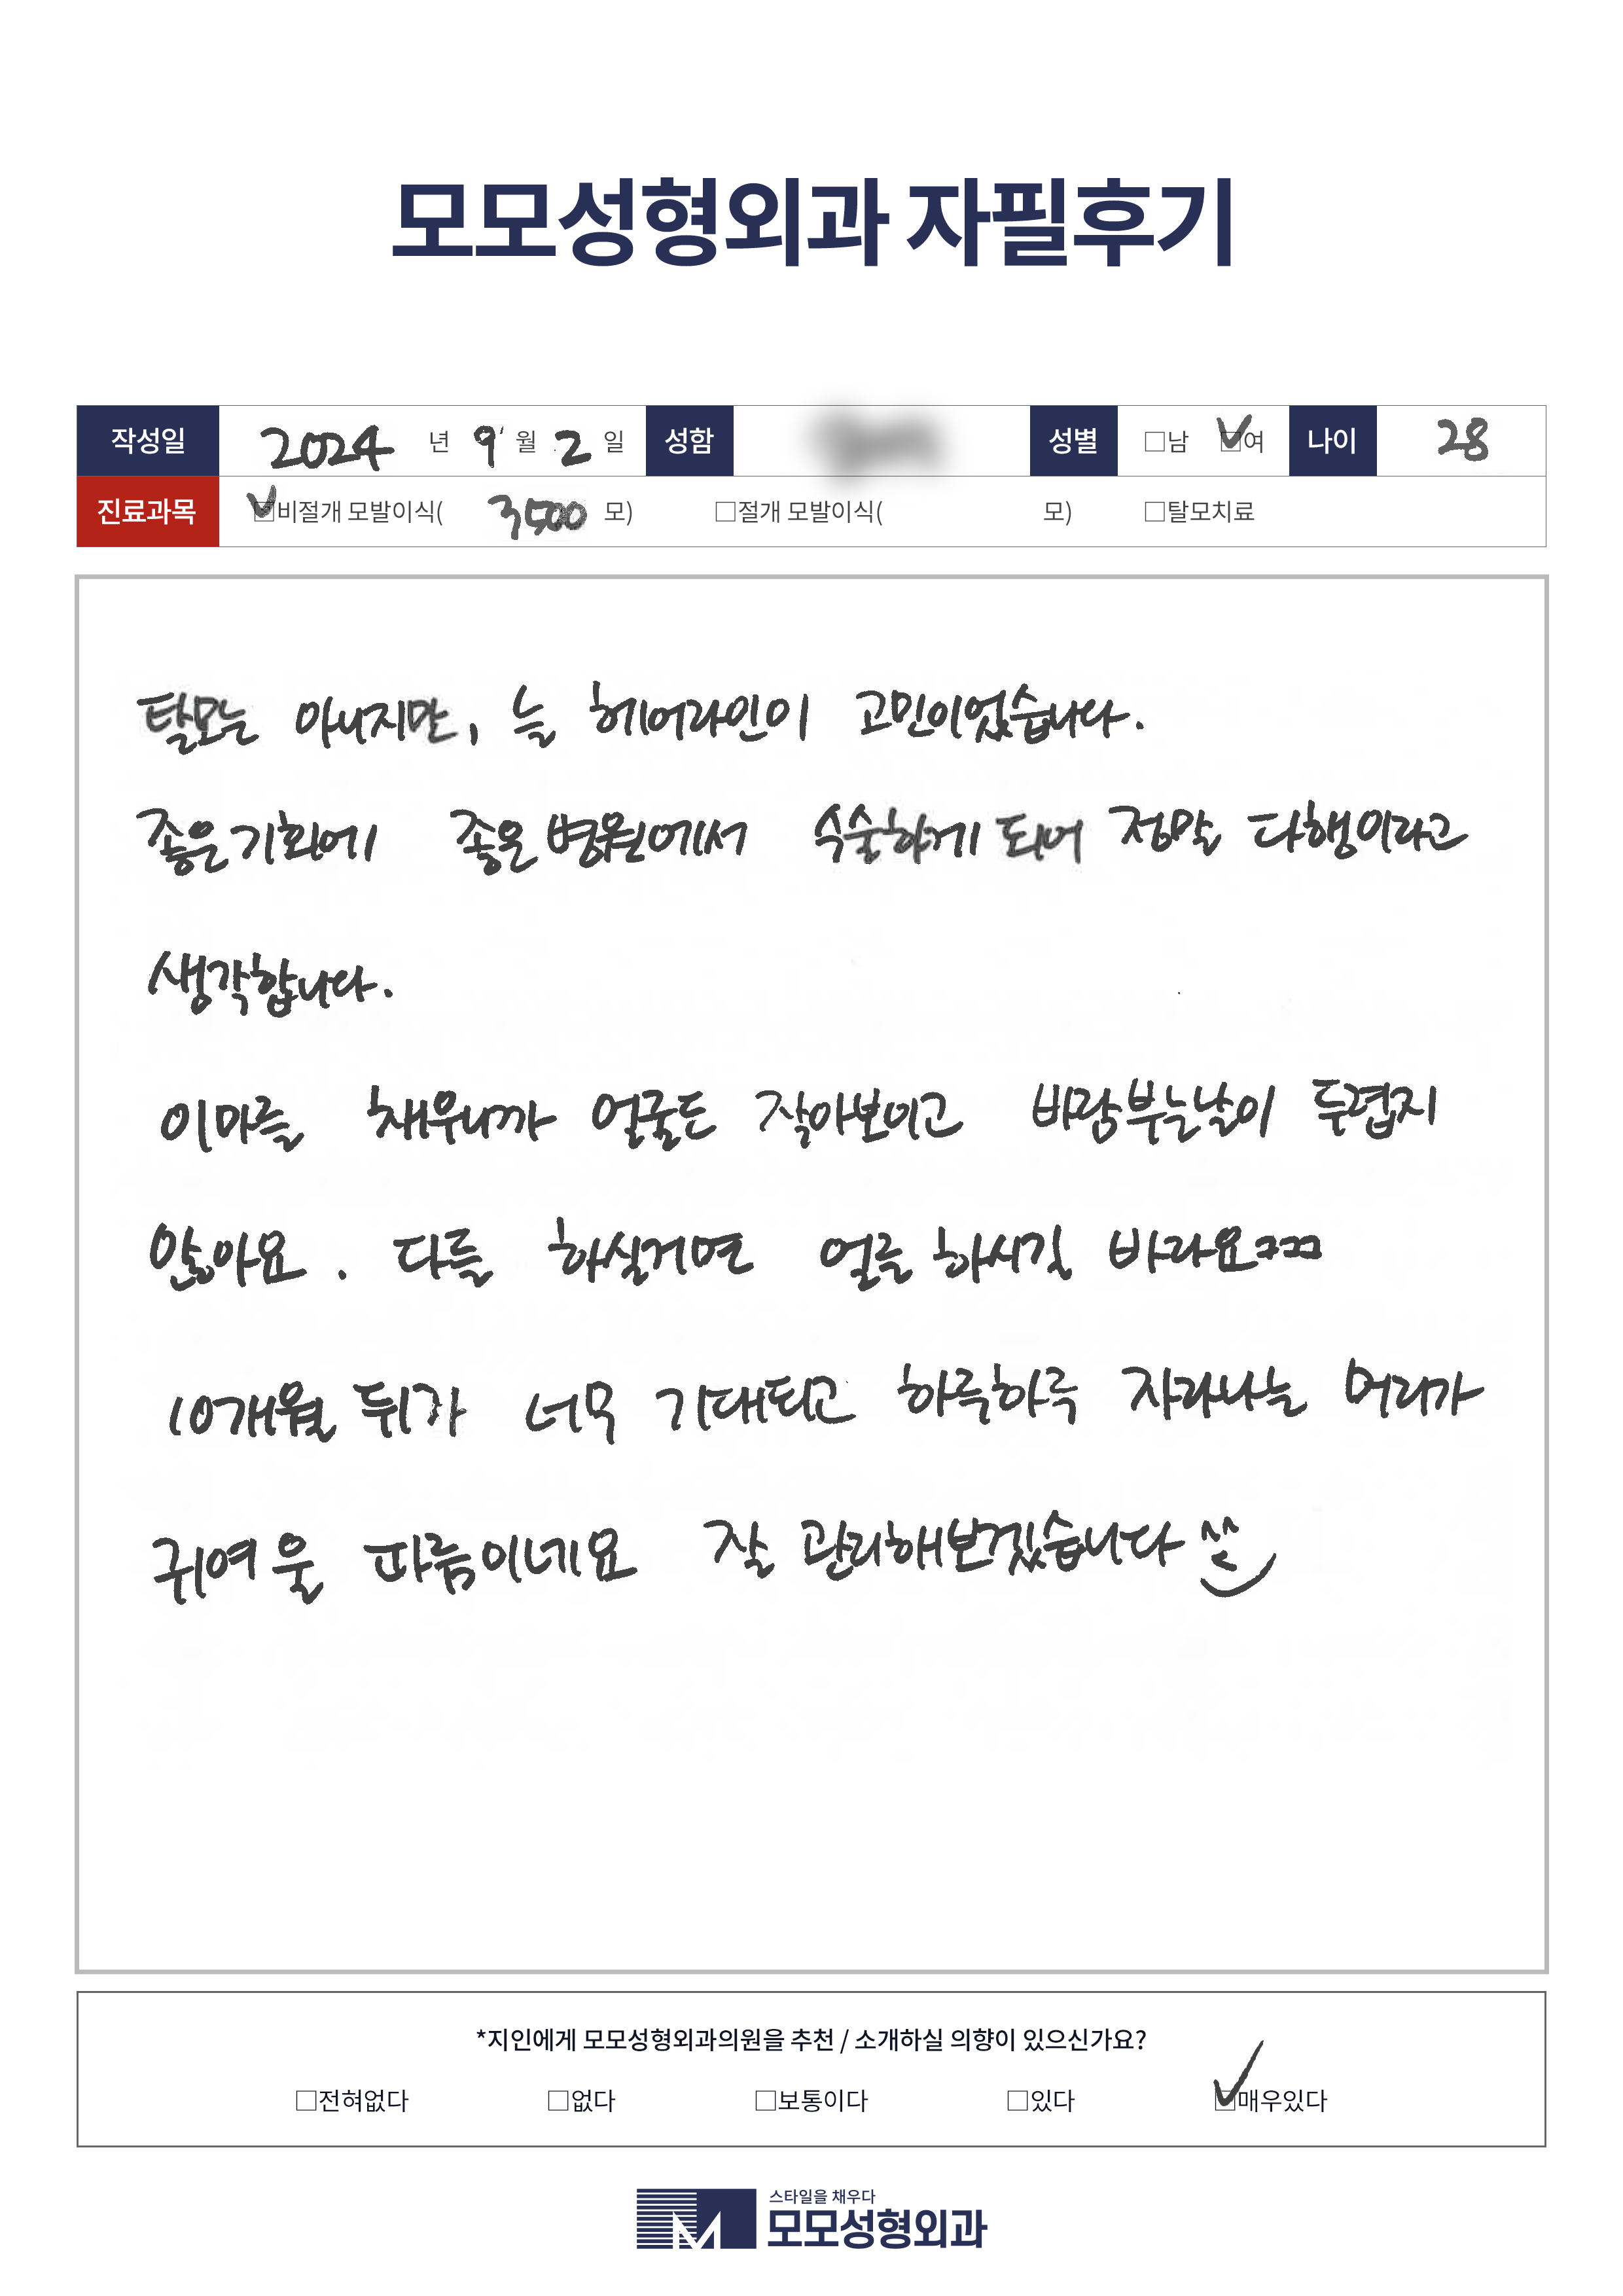 모모성형외과 자필후기
작성일 2024 년 9' 월 2 일 성함 성별 □남 ☑여 나이 28
진료과목 ☑비절개 모발이식( 3500 모) □절개 모발이식( 모) □탈모치료
탈모는 아니지만, 늘 헤어라인이 고민이었습니다.
좋은기회에 좋은병원에서 수술하게 되어 정말 다행이라고
생각합니다.
이마를 채우니까 얼굴도 작아보이고 바람부는날이 두렵지
않아요. 다들 하실거면 얼른 하시길 바라요ㅋㅋㅋ
10개월 뒤가 너무 기대되고 하루하루 자라나는 머리가
귀여울 따름이네요 잘 관리해보겠습니다 ^^
*지인에게 모모성형외과의원을 추천 / 소개하실 의향이 있으신가요?
□전혀없다 □없다 □보통이다 □있다 ☑매우있다
스타일을 채우다
모모성형외과